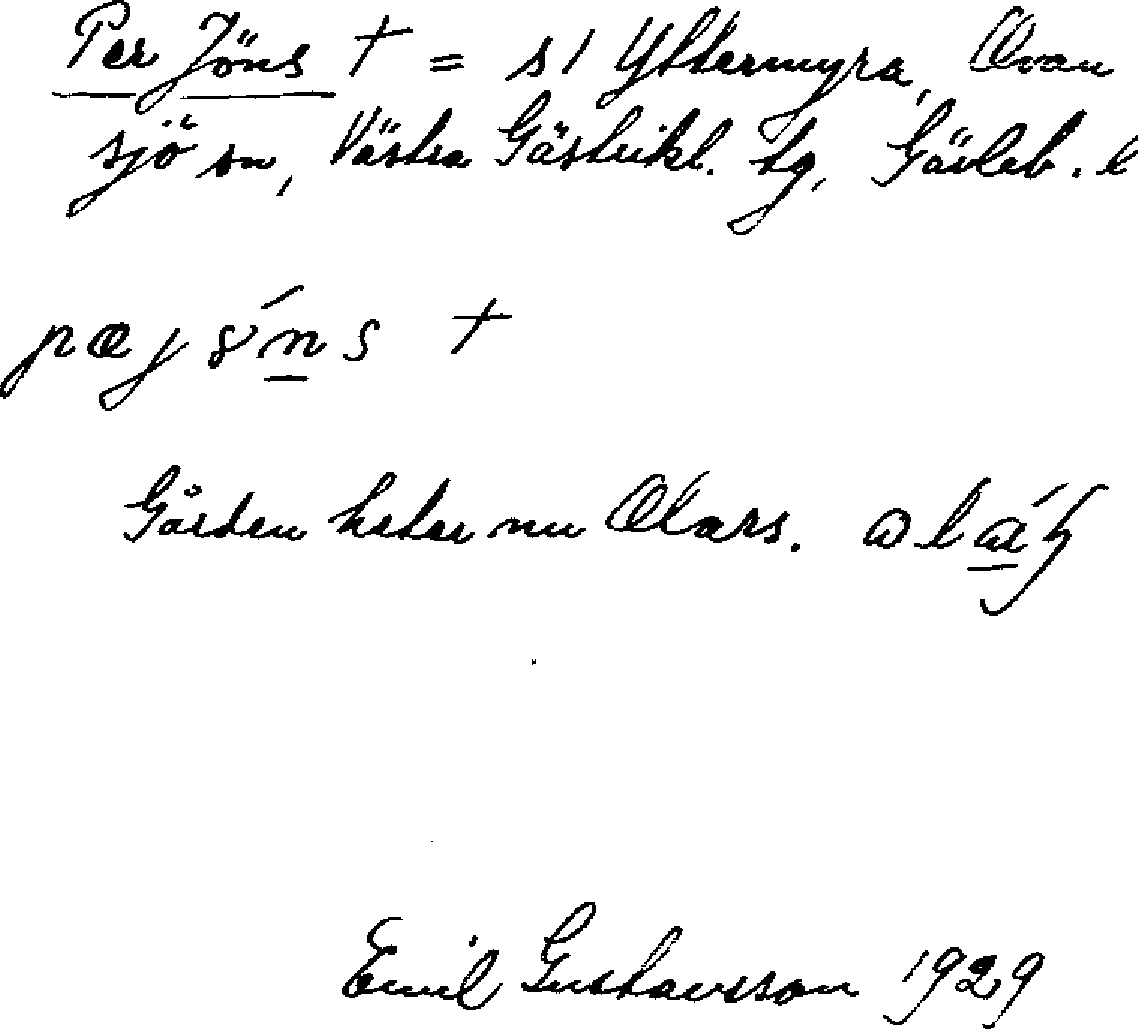 Per Jöns † = s1 Yttermyra, Ovan
sjö sn, Västra Gästrikl. tg, Gävleb. l
Gården heter nu Olars.
Emil Gustavsson 1929